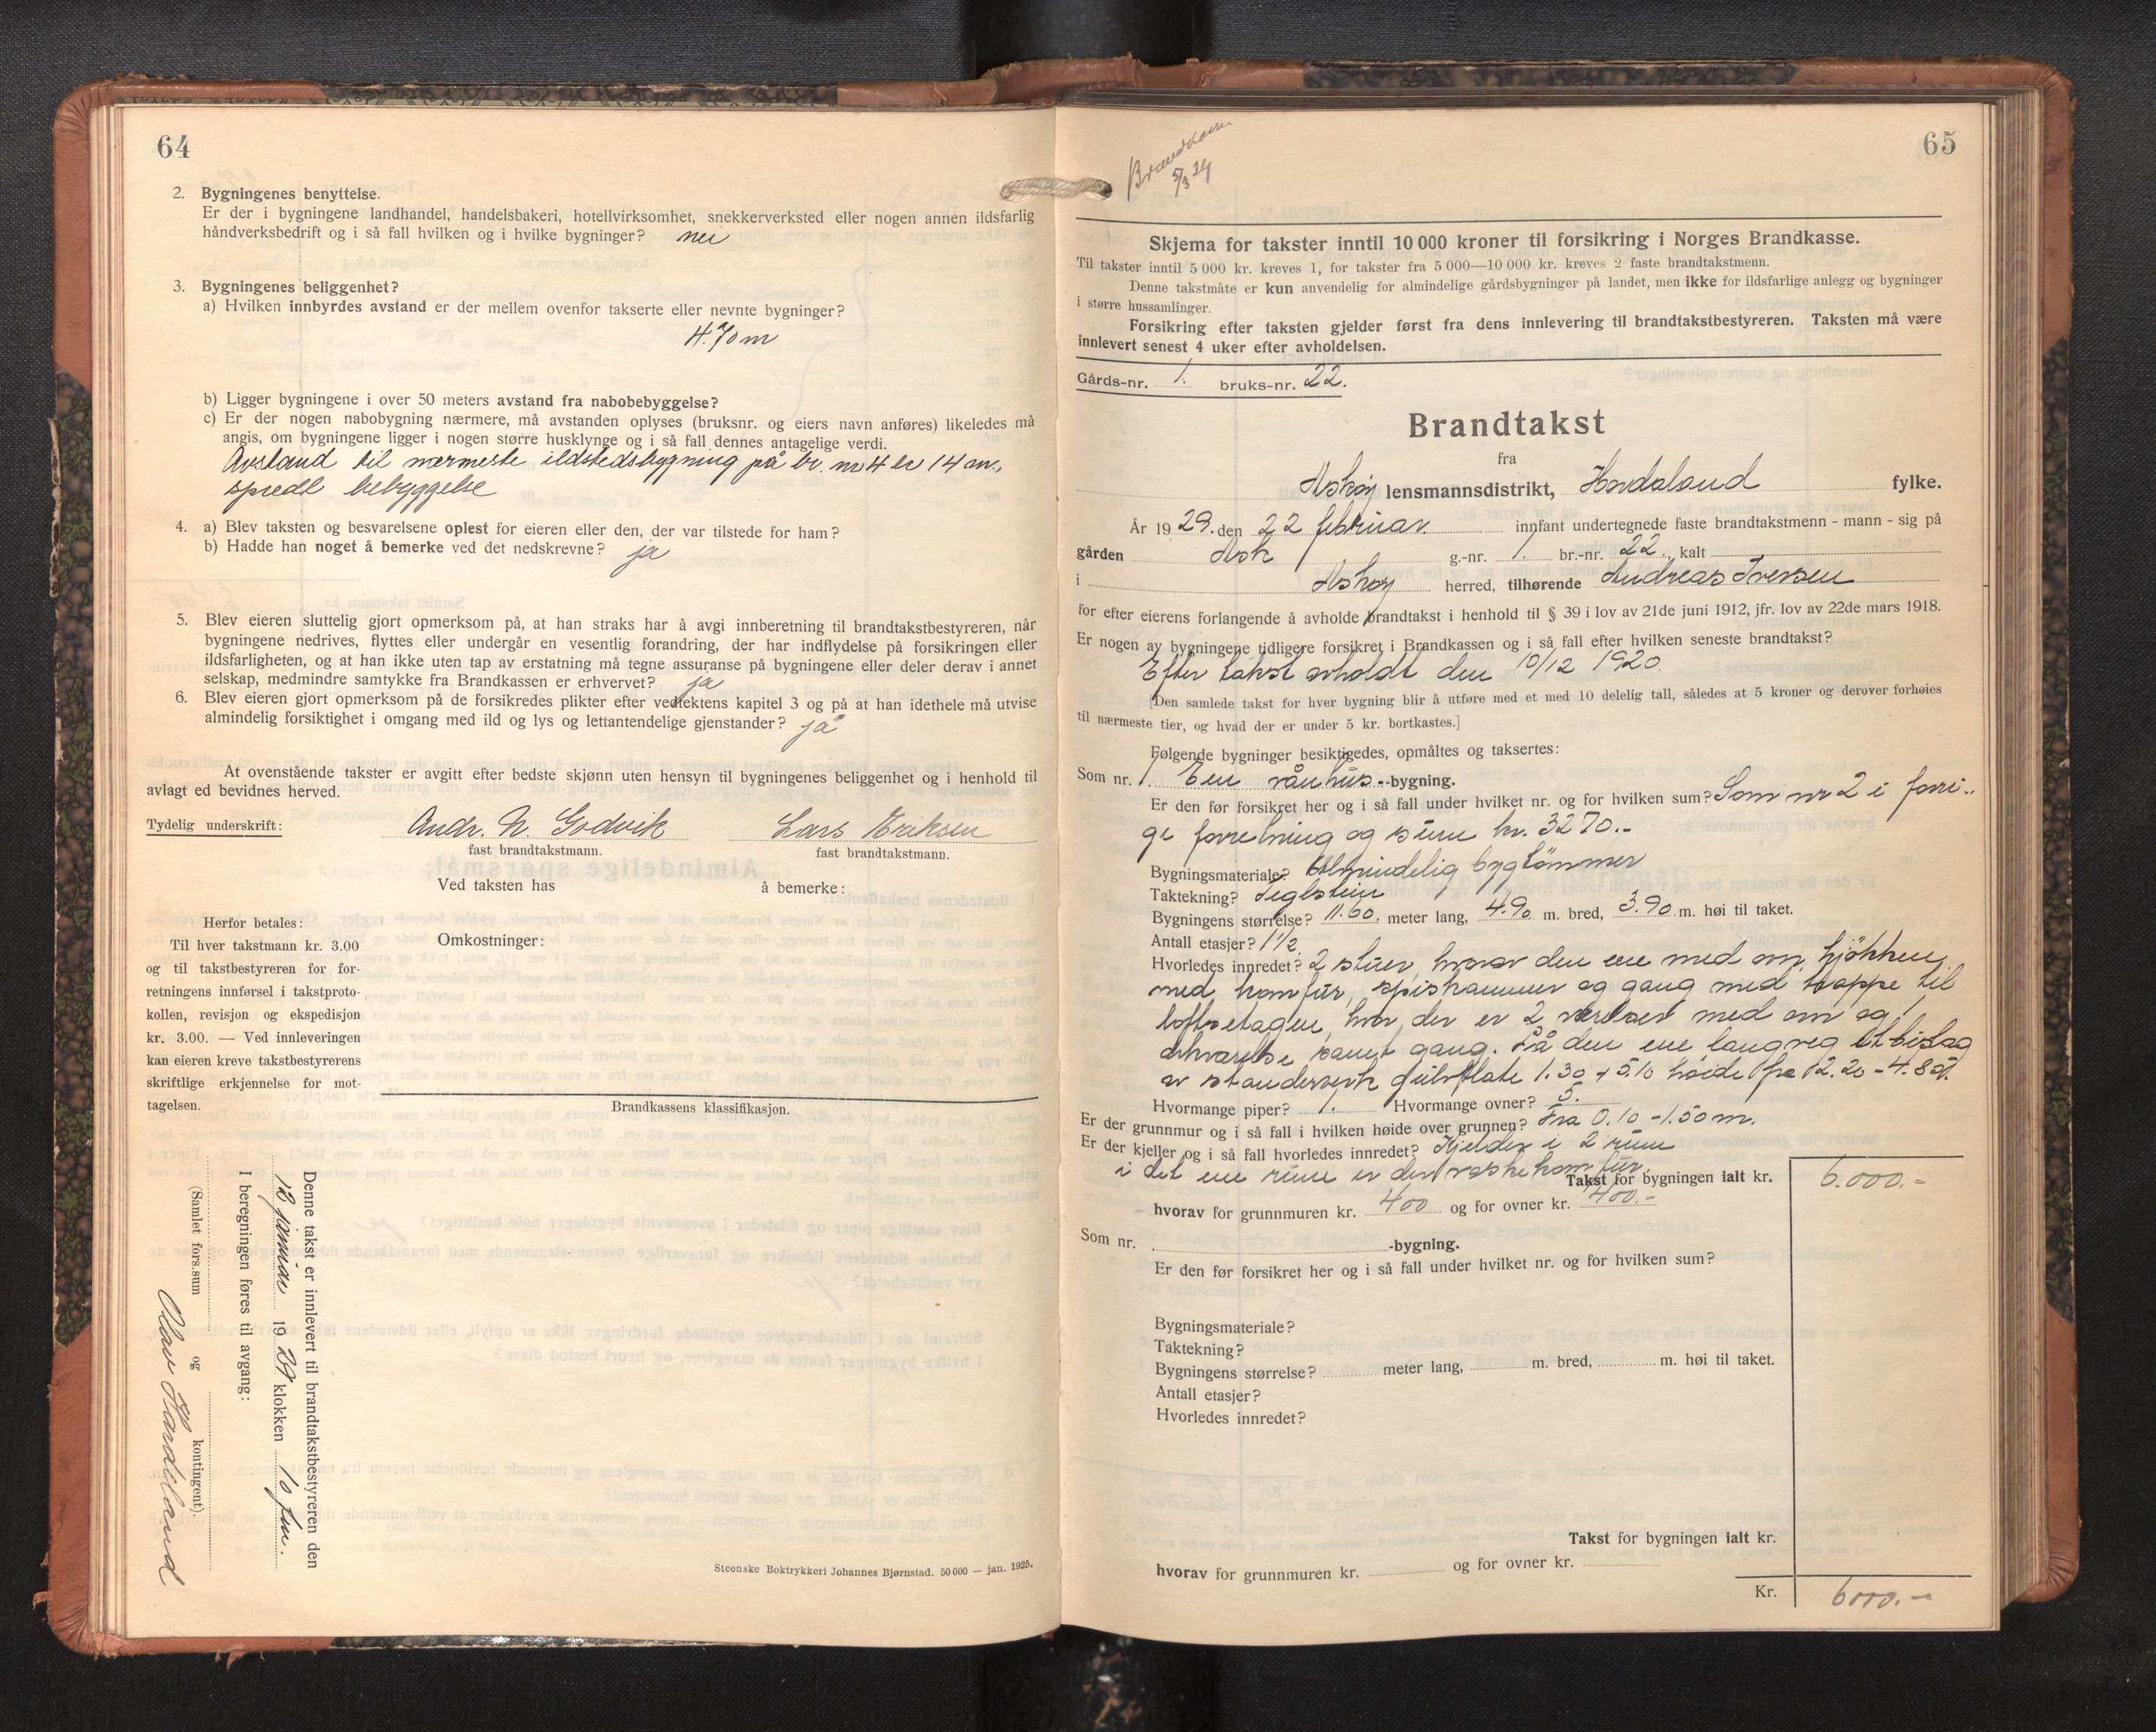 64
2. Bygningenes benyttelse.
Er der i bygningene landhandel, handelsbakeri, hotellvirksomhet, snekkerverksted eller nogen annen ildsfarlig
håndverksbedrift og i så fall hvilken og i hvilke bygninger? nei
3. Bygningenes beliggenhet?
a) Hvilken innbyrdes avstand er der mellem ovenfor takserte eller nevnte bygninger?
4.70 m
b) Ligger bygningene i over 50 meters avstand fra nabobebyggelse?
c) Er der nogen nabobygning nærmere, må avstanden oplyses (bruksnr. og eiers navn anføres) likeledes må
angis, om bygningene ligger i nogen større husklynge og i så fall dennes antagelige verdi.
Avstand til nærmeste ildstedsbygning på br. nr 4 er 14 m,
spredt bebyggelse
4. a) Blev taksten og besvarelsene oplest for eieren eller den, der var tilstede for ham?
b) Hadde han noget å bemerke ved det nedskrevne? ja
5. Blev eieren sluttelig gjort opmerksom på, at han straks har å avgi innberetning til brandtakstbestyreren, når
bygningene nedrives, flyttes eller undergår en vesentlig forandring, der har indflydelse på forsikringen eller
ildsfarligheten, og at han ikke uten tap av erstatning må tegne assuranse på bygningene eller deler derav i annet
selskap, medmindre samtykke fra Brandkassen er erhvervet? ja
6. Blev eieren gjort opmerksom på de forsikredes plikter efter vedtektens kapitel 3 og på at han idethele må utvise
almindelig forsiktighet i omgang med ild og lys og lettantendelige gjenstander? ja
At ovenstående takster er avgitt efter bedste skjønn uten hensyn til bygningenes beliggenhet og i henhold til
avlagt ed bevidnes herved.
Tydelig underskrift: Andr. N. Godvik Lars Eriksen
fast brandtakstmann. fast brandtakstmann.
Ved taksten has å bemerke:
Herfor betales:
Til hver takstmann kr. 3.00
og til takstbestyreren for for-
retningens innførsel i takstproto-
kollen, revisjon og ekspedisjon
kr. 3.00. — Ved innleveringen
kan eieren kreve takstbestyrerens
skriftlige erkjennelse for mot-
tagelsen.
Omkostninger:
Brandkassens klassifikasjon.
Denne takst er innlevert til brandtakstbestyreren den
12 januar 1929 klokken 10 fm.
I beregningen føres til avgang:
(Samlet fors.sum og kontingent).
Olav Hordeland
Steenske Boktrykkeri Johannes Bjørnstad. 50 000 — jan. 1925.
65
Brandkassen
5/3 29
Skjema for takster inntil 10 000 kroner til forsikring i Norges Brandkasse.
Til takster inntil 5 000 kr. kreves 1, for takster fra 5 000—10 000 kr. kreves 2 faste brandtakstmenn.
Denne takstmåte er kun anvendelig for almindelige gårdsbygninger på landet, men ikke for ildsfarlige anlegg og bygninger
i større hussamlinger.
Forsikring efter taksten gjelder først fra dens innlevering til brandtakstbestyreren. Taksten må være
innlevert senest 4 uker efter avholdelsen.
Gårds-nr. 1. bruks-nr. 22.
Brandtakst
fra
Askøy lensmannsdistrikt, Hordaland fylke.
År 1929. den 22 februar. innfant undertegnede faste brandtakstmenn - mann - sig på
gården Ask g.-nr. 1. br.-nr. 22., kalt
i Askøy herred, tilhørende Andreas Iversen
for efter eierens forlangende å avholde brandtakst i henhold til § 39 i lov av 21de juni 1912, jfr. lov av 22de mars 1918.
Er nogen av bygningene tidligere forsikret i Brandkassen og i så fall efter hvilken seneste brandtakst?
Efter takst avholdt den 10/12 1920.
[Den samlede takst for hver bygning blir å utføre med et med 10 delelig tall, således at 5 kroner og derover forhøies
til nærmeste tier, og hvad der er under 5 kr. bortkastes.]
Følgende bygninger besiktigedes, opmåltes og taksertes:
Som nr. 1 En vånhus--bygning.
Er den før forsikret her og i så fall under hvilket nr. og for hvilken sum? Som nr 2 i forri-
ge forretning og sum kr. 3270.-
Bygningsmateriale? Almindelig bygtömmer
Taktekning? Teglstein
Bygningens størrelse? 11.60. meter lang, 4.90 m. bred, 3.90 m. høi til taket.
Antall etasjer? 1 1/2.
Hvorledes innredet? 2 stuer, hvorav den ene med om, kjökken,
med komfur, spiskammer og gang med trappe til
loftsetagen, hvor der er 2 værelser med om og 1
do. samt gang. På den ene langveg et bislag
av standerverk 1.30 + 5.10 höide fra 2.20 - 4.80.
Hvormange piper? 1. Hvormange ovner? 5.
Er der grunnmur og i så fall i hvilken høide over grunnen? Fra 0.10 - 1.50 m.
Er der kjeller og i så fall hvorledes innredet? Kjelder i 2 rum
i det ene rum er der vaskekomfur.
Takst for bygningen ialt kr. 6.000.-
hvorav for grunnmuren kr. 400 og for ovner kr. 400.-
Som nr. -bygning.
Er den før forsikret her og i så fall under hvilket nr. og for hvilken sum?
Bygningsmateriale?
Taktekning?
Bygningens størrelse? meter lang, m. bred, m. høi til taket.
Antall etasjer?
Hvorledes innredet?
Takst for bygningen ialt kr.
hvorav for grunnmuren kr. og for ovner kr.
Kr. 6000.-